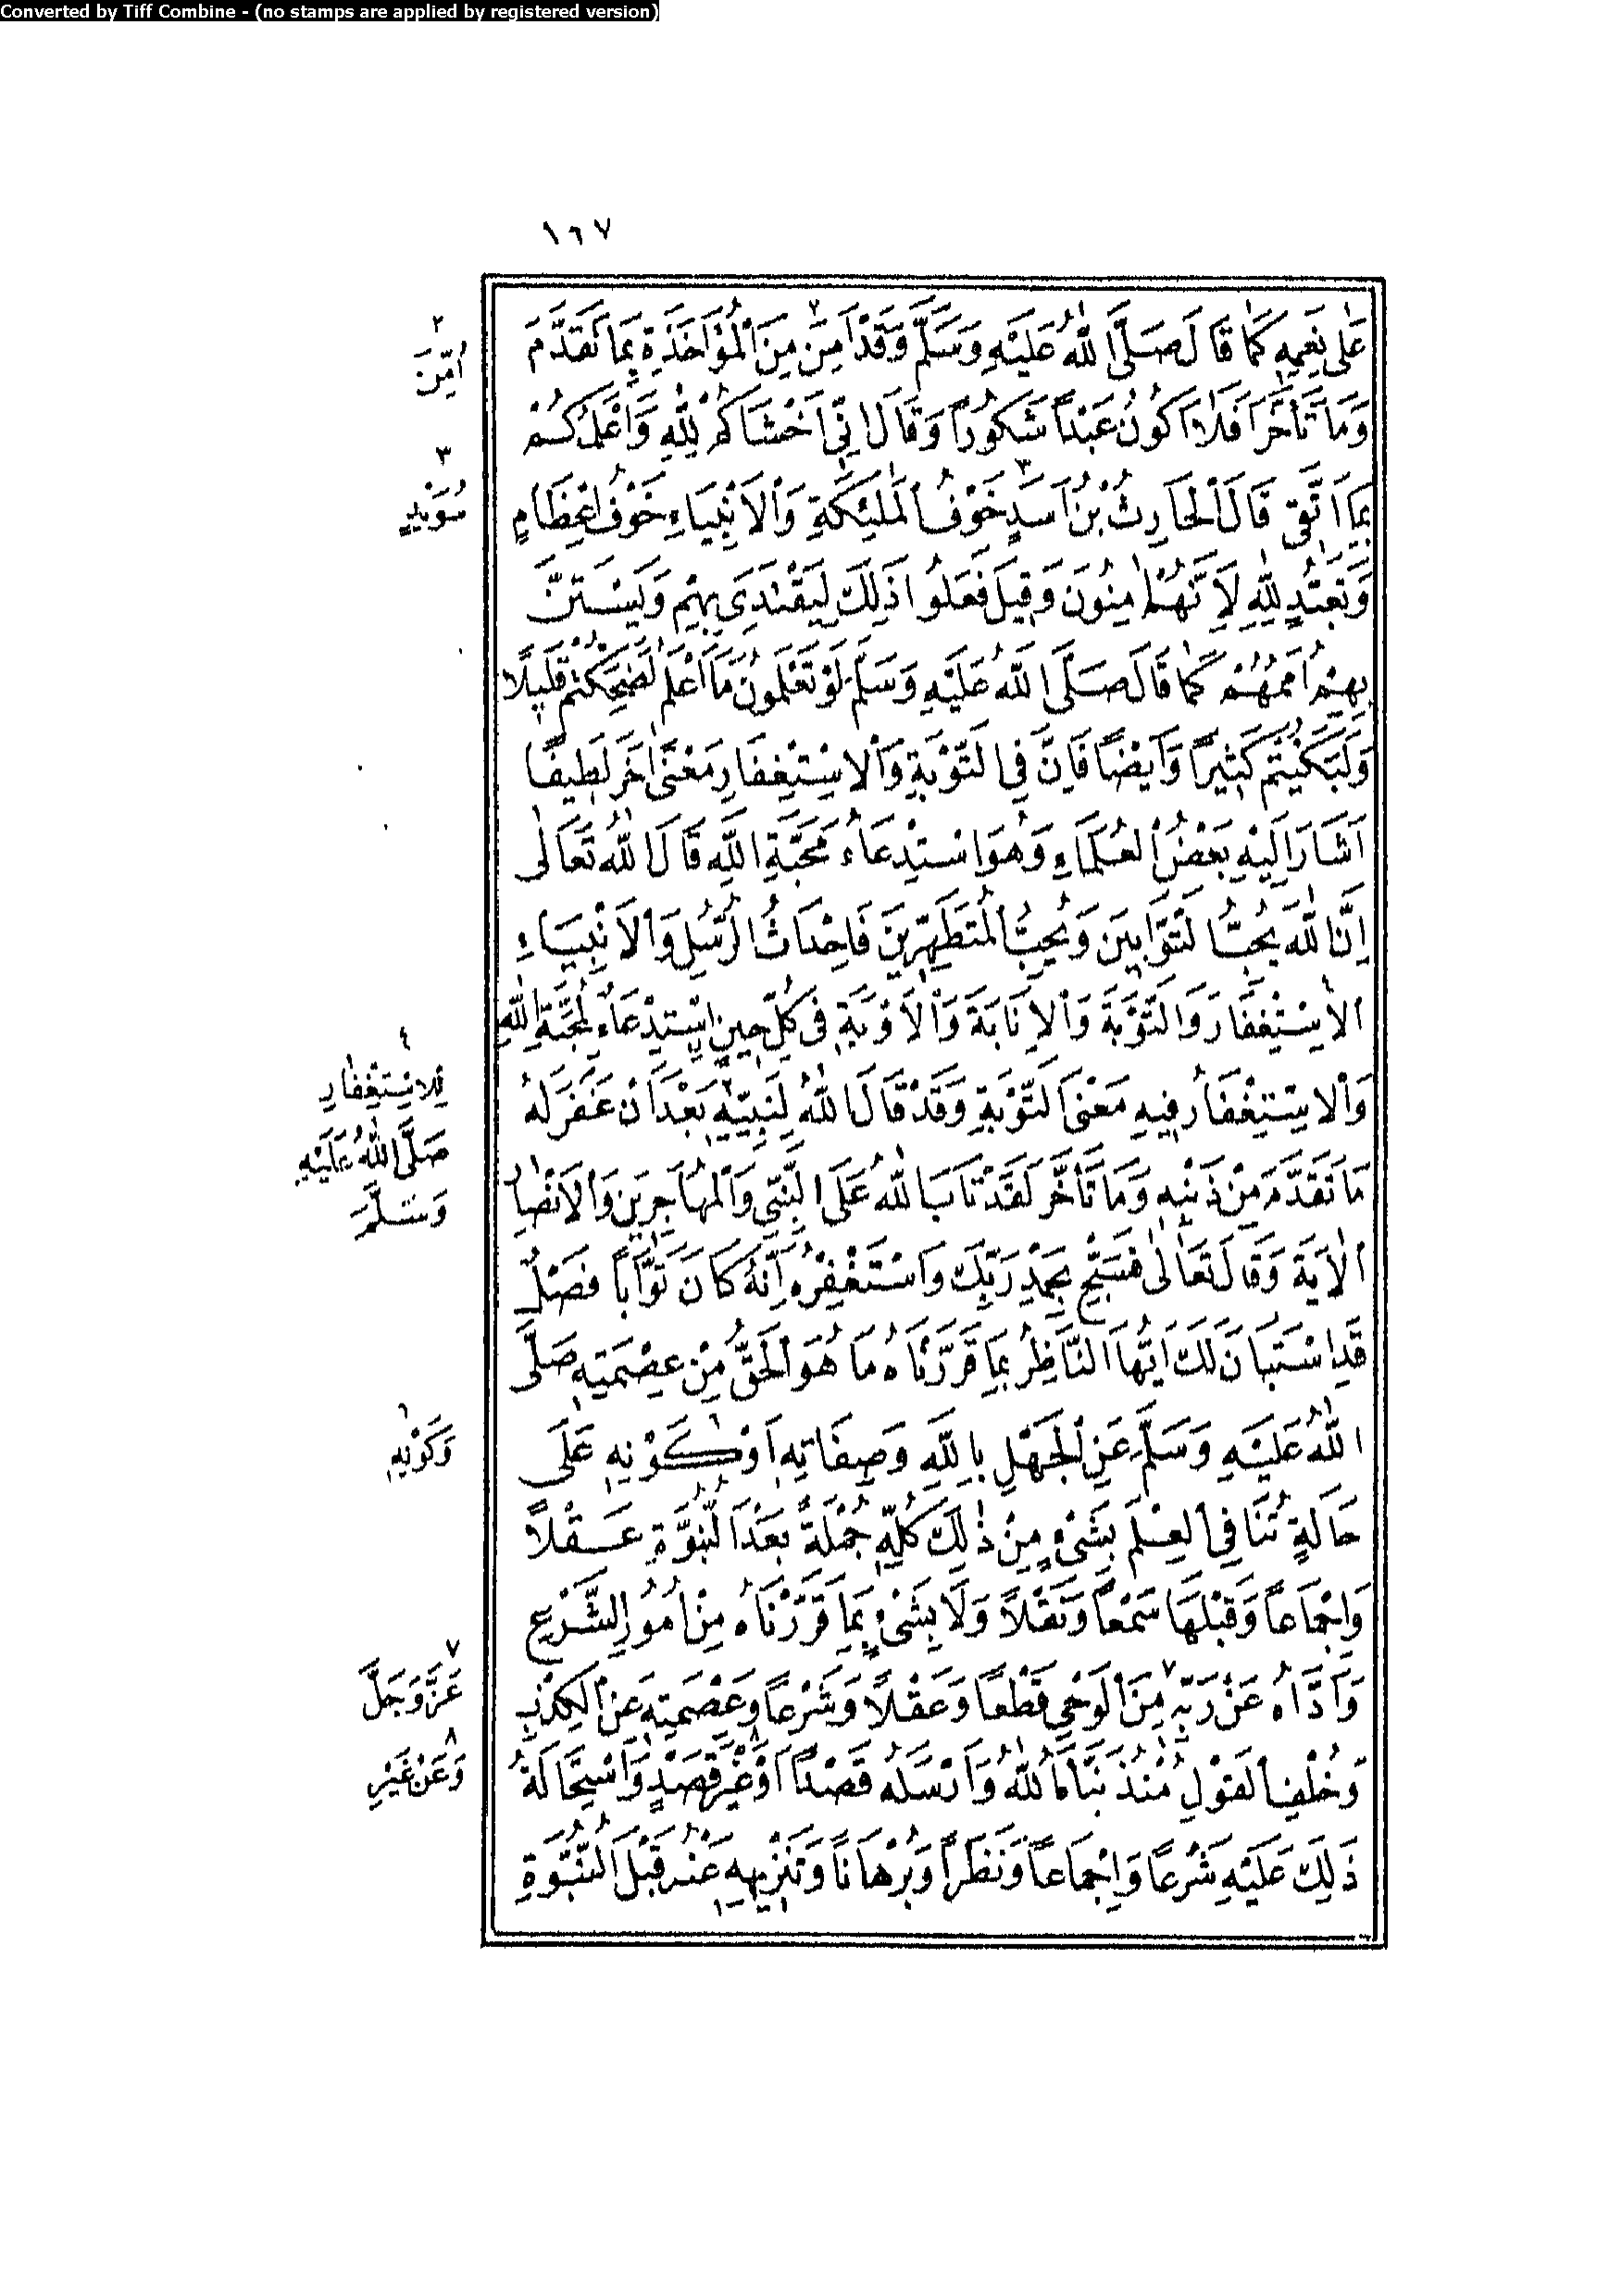 Converted by Tiff Combine - (no stamps are applied by registered version)
١٦٧
عَلَى نِعَمِهِ كَمَا قَالَ صَلَّى اللهُ عَلَيْهِ وَسَلَّمَ وَقَدْ أَمِنَ٢ مِنَ الْمُؤَاخَذَةِ بِمَا تَقَدَّمَ
وَمَا تَأَخَّرَ أَفَلَا أَكُونُ عَبْداً شَكُوراً وَقَالَ إِنِّي أَخْشَاكُمْ لِلّٰهِ وَأَعْلَمُكُمْ
بِمَا أَتَّقِي قَالَ الْحَارِثُ بْنُ أَسَدٍ٣ خَوْفُ الْمَلٰئِكَةِ وَالْأَنْبِيَاءِ خَوْفُ إِعْظَامٍ
وَتَعَبُّدٍ لِلّٰهِ لِأَنَّهُمْ اٰمِنُونَ وَقِيلَ فَعَلُوا ذَلِكَ لِيَقْتَدِيَ بِهِمْ وَيَسْتَنَّ
بِهِمْ أُمَمُهُمْ كَمَا قَالَ صَلَّى اللهُ عَلَيْهِ وَسَلَّمَ لَوْ تَعْلَمُونَ مَا أَعْلَمُ لَضَحِكْتُمْ قَلِيلًا
وَلَبَكَيْتُمْ كَثِيرًا وَأَيْضًا فَإِنَّ فِي التَّوْبَةِ وَالْاِسْتِغْفَارِ مَعْنًى اٰخَرَ لَطِيفًا
أَشَارَ إِلَيْهِ بَعْضُ الْعُلَمَاءِ وَهُوَ اسْتِدْعَاءُ مَحَبَّةِ اللهِ قَالَ اللهُ تَعَالٰى
إِنَّ اللهَ يُحِبُّ التَّوَّابِينَ وَيُحِبُّ الْمُتَطَهِّرِينَ فَإِحْدَاثُ الرُّسُلِ وَالْأَنْبِيَاءِ
الْاِسْتِغْفَارَ وَالتَّوْبَةَ وَالْإِنَابَةَ وَالْأَوْبَةَ فِي كُلِّ حِينٍ اسْتِدْعَاءٌ لِمَحَبَّةِ اللهِ
وَالْاِسْتِغْفَارُ فِيهِ مَعْنَى التَّوْبَةِ وَقَدْ قَالَ اللهُ لِنَبِيِّهِ بَعْدَ أَنْ غَفَرَ لَهُ
مَا تَقَدَّمَ مِنْ ذَنْبِهِ وَمَا تَأَخَّرَ لَقَدْ تَابَ اللهُ عَلَى النَّبِيِّ وَالْمُهَاجِرِينَ وَالْأَنْصَارِ
الْاٰيَةَ وَقَالَ تَعَالٰى فَسَبِّحْ بِحَمْدِ رَبِّكَ وَاسْتَغْفِرْهُ إِنَّهُ كَانَ تَوَّاباً فَصْلٌ
قَدِ اسْتَبَانَ لَكَ أَيُّهَا النَّاظِرُ بِمَا قَرَّرْنَاهُ مَا هُوَ الْحَقُّ مِنْ عِصْمَتِهِ صَلَّى
اللهُ عَلَيْهِ وَسَلَّمَ عَنِ الْجَهْلِ بِاللهِ وَصِفَاتِهِ أَوْ كَوْنِهِ عَلَى
حَالَةٍ تُنَافِي الْعِلْمَ بِشَيْءٍ مِنْ ذٰلِكَ كُلِّهِ جُمْلَةً بَعْدَ النُّبُوَّةِ عَقْلًا
وَإِجْمَاعاً وَقَبْلَهَا سَمْعاً وَنَقْلاً وَلَا بِشَيْءٍ بِمَا قَرَّرْنَاهُ مِنْ أُمُورِ الشَّرْعِ
وَأَدَّاهُ عَنْ رَبِّهِ٧ مِنَ الْوَحْيِ قَطْعاً وَعَقْلاً وَشَرْعاً وَعِصْمَتِهِ عَنِ الْكَذِبِ
وَخُلْفِ الْقَوْلِ مُنْذُ نَبَّأَهُ اللهُ وَأَرْسَلَهُ قَصْداً أَوْ غَيْرَ٨ قَصْدٍ وَاسْتِحَالَةُ
ذَلِكَ عَلَيْهِ شَرْعاً وَإِجْمَاعاً وَنَظَراً وَبُرْهَاناً وَتَنْزِيهِهِ عَنْهُ قَبْلَ النُّبُوَّةِ
٢
أُمِّنَ
٣
سُوَيْدٍ
٤
لِلاِسْتِغْفَارِ
صَلَّى اللهُ عَلَيْهِ
وَسَلَّمَ
٦
وَكَوْنِهِ
٧
عَزَّ وَجَلَّ
٨
وَعَنْ غَيْرِ